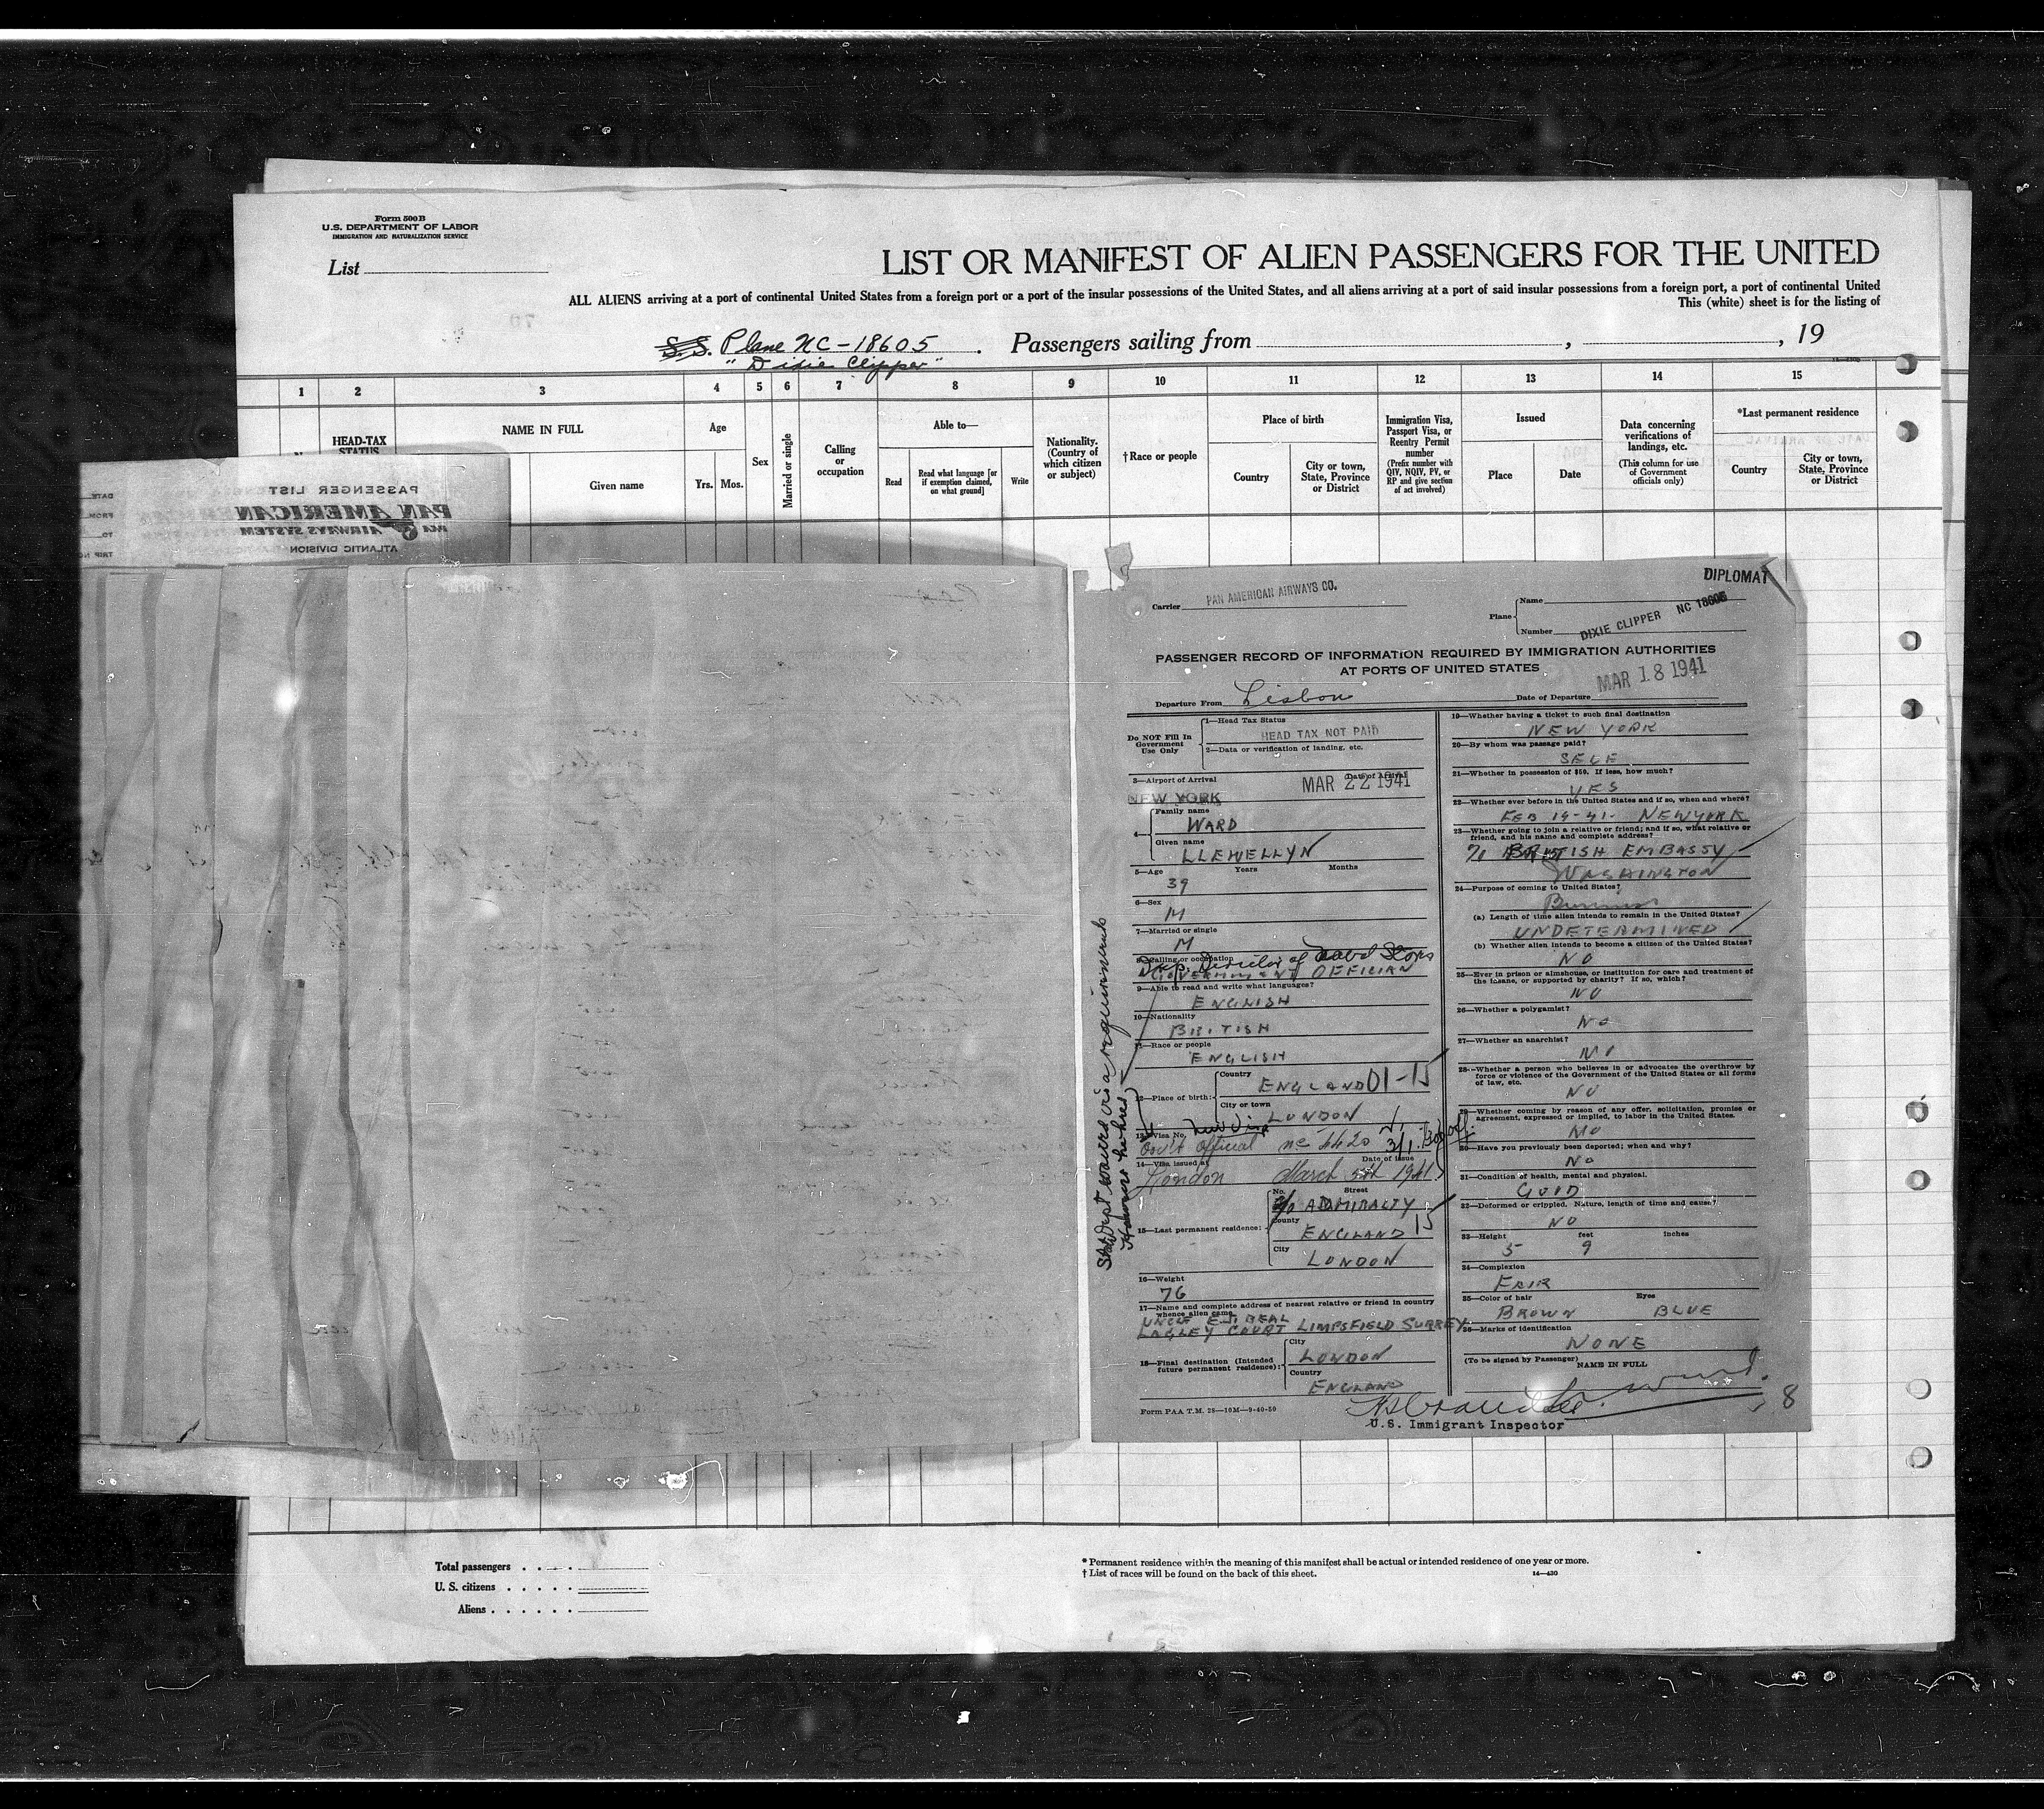 Form 500B
U.S. DEPARTMENT OF LABOR
IMMIGRATION AND NATURALIZATION SERVICE
List
LIST OR MANIFEST OF ALIEN PASSENGERS FOR THE UNITED
ALL ALIENS arriving at a port of continental United States from a foreign port or a port of the insular possessions of the United States, and all aliens arriving at a port of said insular possessions from a foreign port, a port of continental United
This (white) sheet is for the listing of
S.S. Plane NC-18605. Passengers sailing from , , 19
"Dixie Clipper"
1 2 3 4 5 6 7 8 9 10 11 12 13 14 15
HEAD-TAX STATUS
NAME IN FULL
Given name
Age
Yrs. Mos.
Sex
Married or single
Calling or occupation
Able to—
Read
Read what language [or if exemption claimed, on what ground]
Write
Nationality. (Country of which citizen or subject)
†Race or people
Place of birth
Country
City or town, State, Province or District
Immigration Visa, Passport Visa, or Reentry Permit number
(Prefix number with QIV, NQIV, PV, or RP and give section of act involved)
Issued
Place
Date
Data concerning verifications of landings, etc.
(This column for use of Government officials only)
*Last permanent residence
Country
City or town, State, Province or District
PASSENGER LIST
PAN AMERICAN
AIRWAYS SYSTEM
PAA
ATLANTIC DIVISION
DATE
FROM
TO
TRIP NO
DIPLOMAT
Carrier PAN AMERICAN AIRWAYS CO.
Plane Name
Number DIXIE CLIPPER NC 18605
PASSENGER RECORD OF INFORMATION REQUIRED BY IMMIGRATION AUTHORITIES
AT PORTS OF UNITED STATES
Departure From Lisbon Date of Departure MAR 18 1941
Do NOT Fill In Government Use Only
1—Head Tax Status
HEAD TAX NOT PAID
2—Data or verification of landing, etc.
3—Airport of Arrival Date of Arrival
NEW YORK MAR 22 1941
4— Family name
WARD
Given name
LLEWELLYN
5—Age Years Months
39
6—Sex
M
7—Married or single
M
8—Calling or occupation
Dep. Director of Naval Stores
GOVERNMENT OFFICIAL
9—Able to read and write what languages?
ENGLISH
10—Nationality
BRITISH
11—Race or people
ENGLISH
12—Place of birth: Country
ENGLAND 01-15
City or town
LONDON
13—Visa No.
Gov't Official No 4420 3/1
14—Visa issued at Date of Issue
London March 5th 1941
15—Last permanent residence: No. Street
c/o ADMIRALTY
County
ENGLAND 15
City
LONDON
16—Weight
76
17—Name and complete address of nearest relative or friend in country whence alien came
UNCLE E.J. BEAL
LAGLEY COURT LIMPSFIELD SURREY
18—Final destination (Intended future permanent residence): City
LONDON
Country
ENGLAND
Form PAA T.M. 28—10M—9-40-50
State Dept waivers visa requirements
19—Whether having a ticket to such final destination
NEW YORK
20—By whom was passage paid?
SELF
21—Whether in possession of $50. If less, how much?
YES
22—Whether ever before in the United States and if so, when and where?
FEB 19-41. NEW YORK
23—Whether going to join a relative or friend; and if so, what relative or friend, and his name and complete address?
c/o BRITISH EMBASSY
WASHINGTON
24—Purpose of coming to United States?
Business
(a) Length of time alien intends to remain in the United States?
UNDETERMINED
(b) Whether alien intends to become a citizen of the United States?
NO
25—Ever in prison or almshouse, or institution for care and treatment of the insane, or supported by charity? If so, which?
NO
26—Whether a polygamist?
NO
27—Whether an anarchist?
NO
28—Whether a person who believes in or advocates the overthrow by force or violence of the Government of the United States or all forms of law, etc.
NO
29—Whether coming by reason of any offer, solicitation, promise or agreement, expressed or implied, to labor in the United States.
NO
30—Have you previously been deported; when and why?
NO
31—Condition of health, mental and physical.
GOOD
32—Deformed or crippled. Nature, length of time and cause?
NO
33—Height feet inches
5 9
34—Complexion
FAIR
35—Color of hair Eyes
BROWN BLUE
36—Marks of identification
NONE
(To be signed by Passenger) NAME IN FULL
U.S. Immigrant Inspector
8
Total passengers
U. S. citizens
Aliens
* Permanent residence within the meaning of this manifest shall be actual or intended residence of one year or more.
† List of races will be found on the back of this sheet.
14—430